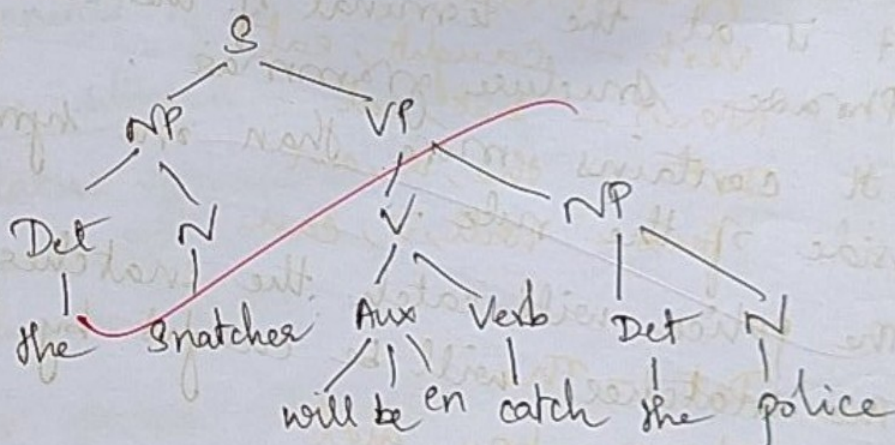 S
NP VP
Det N V NP
the Snatcher Aux Verb Det N
will be en catch the police